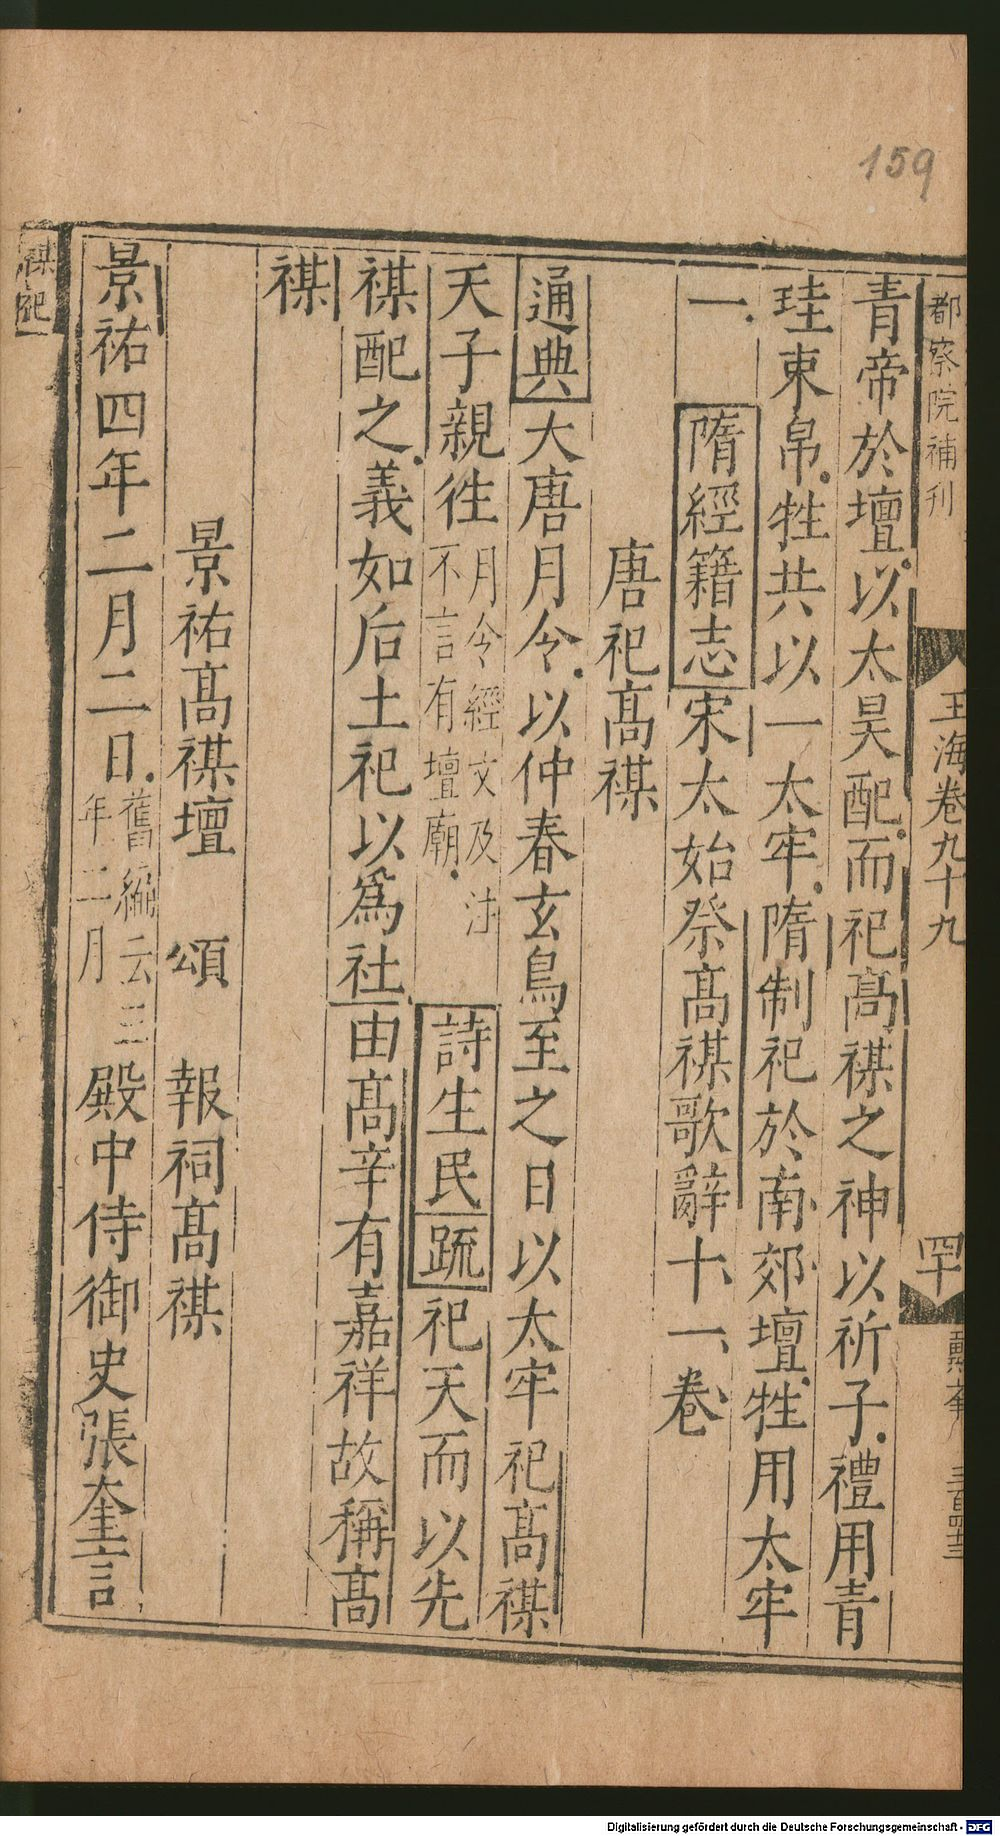 159
都察院補刊
玉海卷九十九
罕
三百四十三
青帝於壇以太昊配而祀髙禖之神以祈子禮用青
珪束帛牲共以一太牢隋制祀於南郊壇牲用太牢
一 隋經籍志宋太始祭髙禖歌辭十一卷
唐祀髙禖
通典大唐月令以仲春玄鳥至之日以太牢祀髙禖
天子親徃月令經文及注不言有壇廟詩生民疏祀天而以先
禖配之義如后土祀以爲社由髙辛有嘉祥故稱髙
禖
景祐髙禖壇 頌 報祠髙禖
景祐四年二月二日舊編云三年二月殿中侍御史張奎言
禖祀
Digitalisierung gefördert durch die Deutsche Forschungsgemeinschaft - DFG